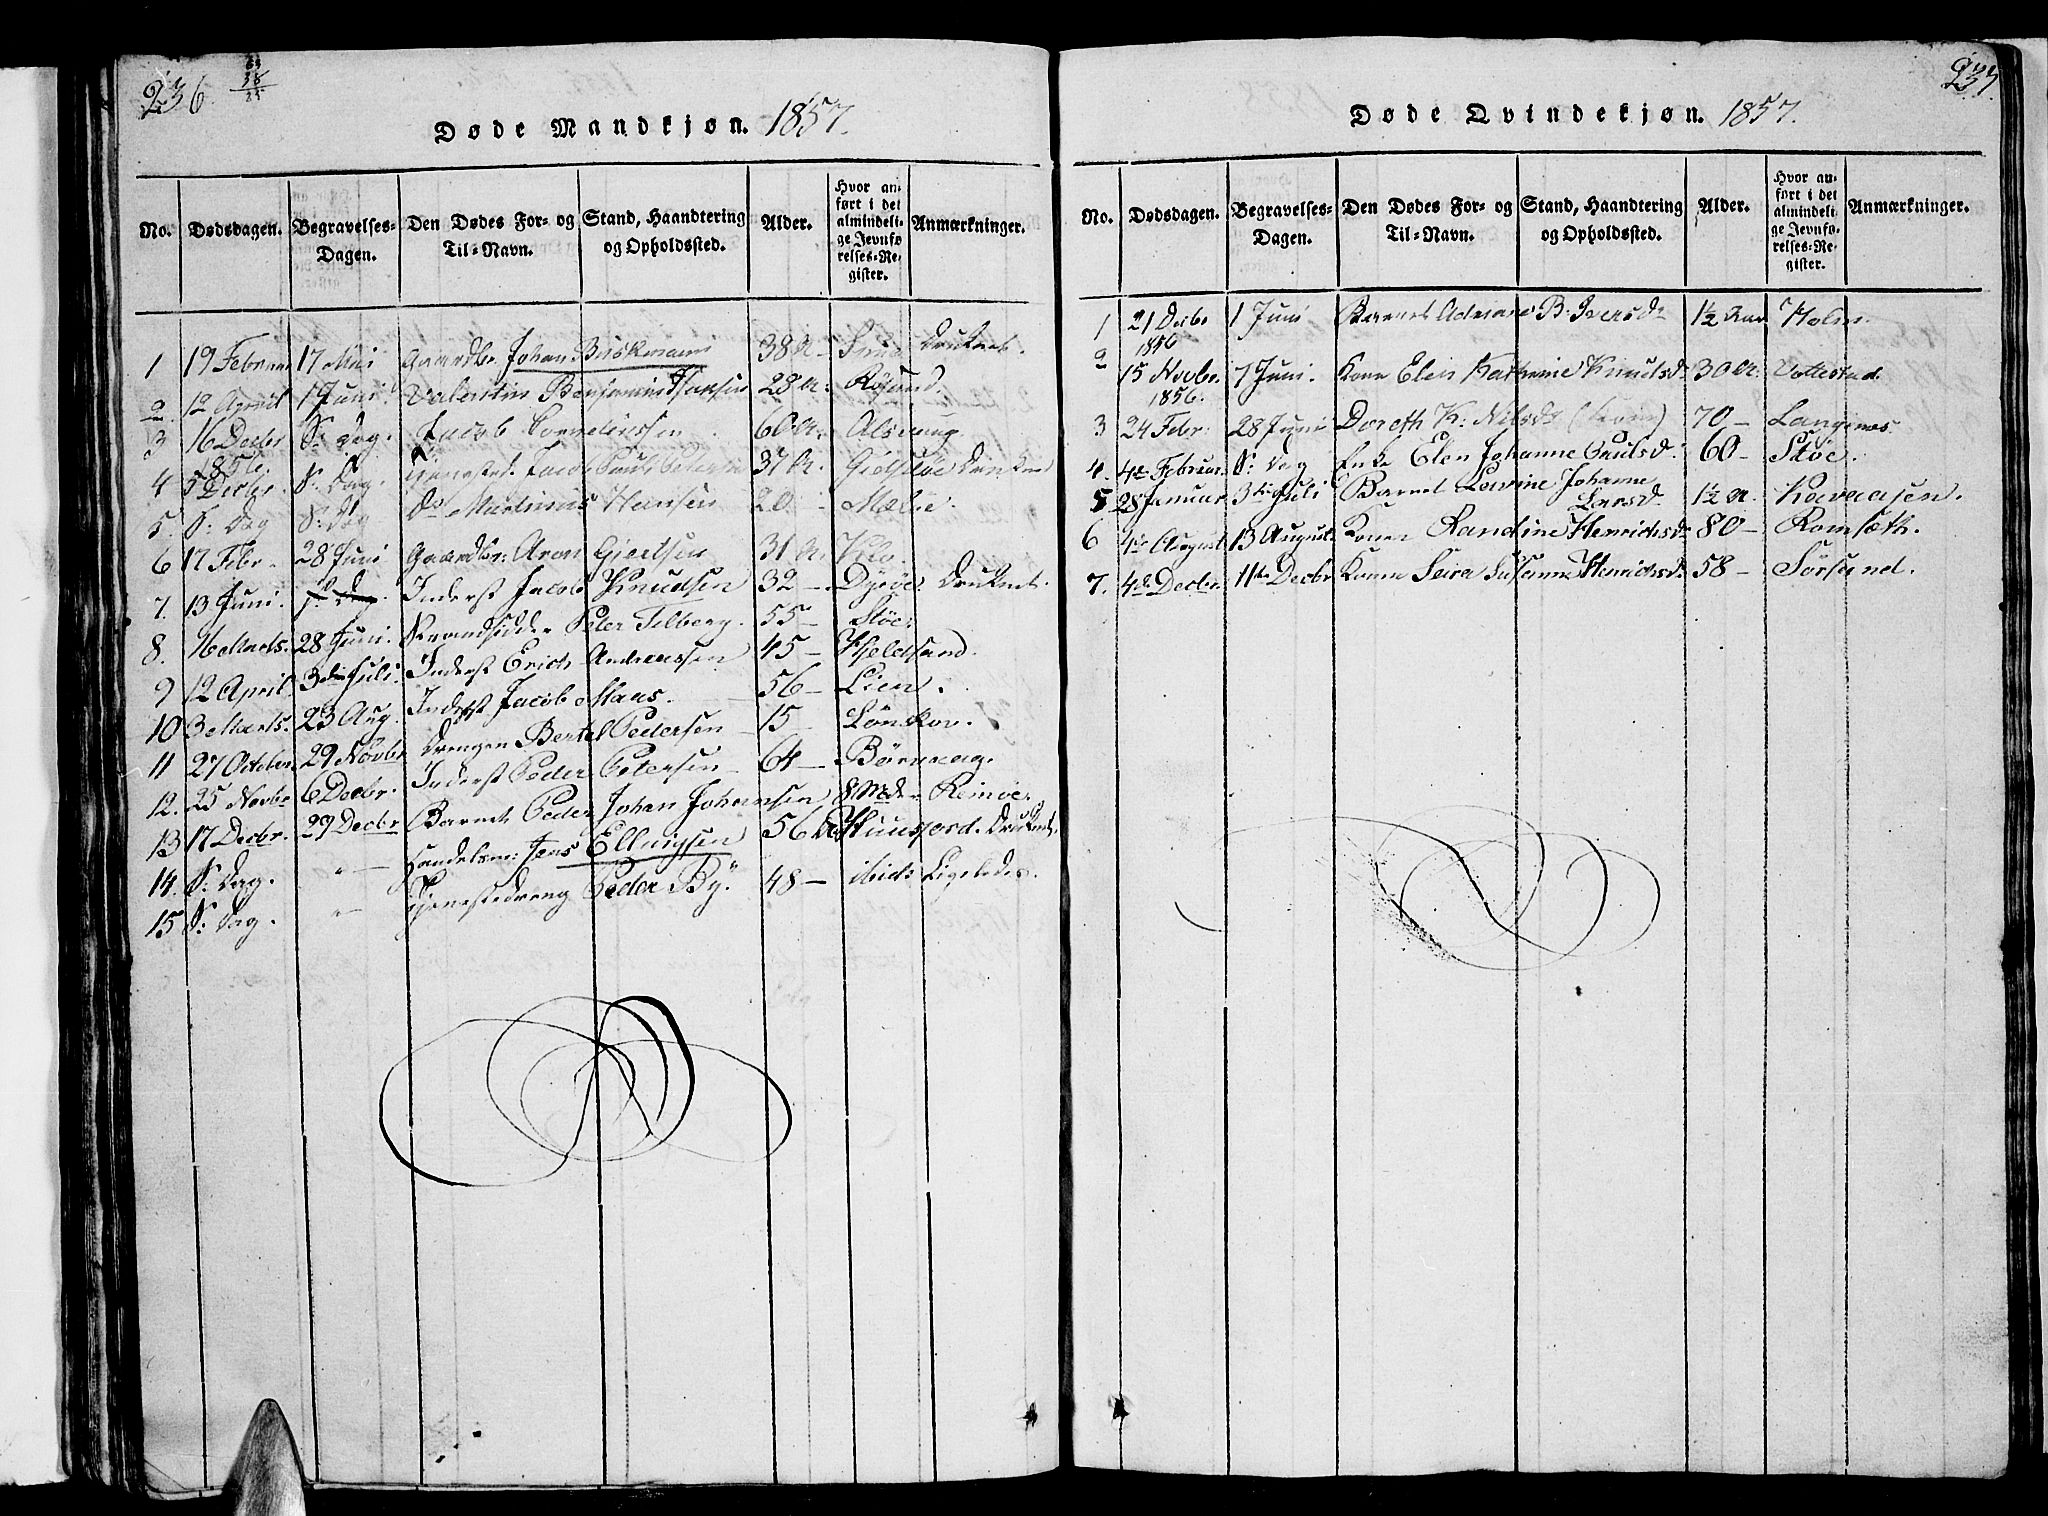 236
63
38
25
Døde Mandkjøn. 1857.
No. Dødsdagen. Begravelses-Dagen. Den Dødes For- og Til-Navn. Stand, Haandtering og Opholdssted. Alder. Hvor anført i det almindelige Jevnførelses-Register. Anmærkninger.
1 19 Februar 17 Mai Gaardbr Johan Buskmann 38 A. Druknet.
2 12 April 1 Juni Valentin Benjamin Hansen 28 A. Røsand.
3 16 Decbr 1856. S: Dag. Jacob Cornelissen 60 A. Alsvaag.
4 5 Decbr. S: Dag. Tjenestedr. Jacob Pauli Petersen 37 A. Gielsløe
5. S: Dag S: Dag Do Martinus Hansen 20 Maløe.
6 17 Febr. 28 Juni Gaardbr: Aron Giertsen 31 A. Klo.
7. 13 Juni. S: Dag. Inderst Jacob Knudsen 32 — Dyrøe. Druknet.
8. 16 Marts. 28 Juni. Strandsidder Peter Filberg. 55 — Støe.
9 12 April 3die Juli. Inderst Erich Andreassen 45 — Hjeldsand.
10 3 Marts. 23 Aug. Inderst Jacob Maas. 56 — Lien.
11 27 Octobr 29 Novbr Drengen Bertel Pedersen 15 Lønskov.
12. 25 Novbr 6 Decbr. Inderst Peder Petersen 64 — Børnvag.
13 17 Decbr. 29 Decbr Barnet Peder Johan Johansen 8 Mdr Reinøe.
14. S: Dag. " Handelsm: Jens Ellingsen 56 A. Skuusfjord. Druknet.
15 S: Dag. " Tjenestedreng Peder By. 48 — ibid: Ligeledes.
237.
Døde Qvindekjøn. 1857.
No. Dødsdagen. Begravelses-Dagen. Den Dødes For- og Til-Navn. Stand, Haandtering og Opholdssted. Alder. Hvor anført i det almindelige Jevnførelses-Register. Anmærkninger.
1 21 Decbr 1856 1 Juni Barnet Adriane B. Iversdr 1½ Aar Holm.
2 15 Novbr. 1856. 7 Juni. Kone Elen Kathrine Knudsdr 30 A. Vottestad.
3 24 Febr: 28 Juni Doreth K: Nilsdr (Kone) 70 — Langenes
4. 4de Februar. S: Dag Enke Elen Johanne Paulsd. 60 — Støe.
5 28 Januar 3die Juli Barnet Lavine Johanne Larsd 1½ A. Kovaasen.
6 4de August 13 August Konen Randine Henrichsdr 80 — Romsæth.
7. 4de Decbr. 11te Decbr Konen Seira Susanne Henrichsdr 58 — Sørsand.